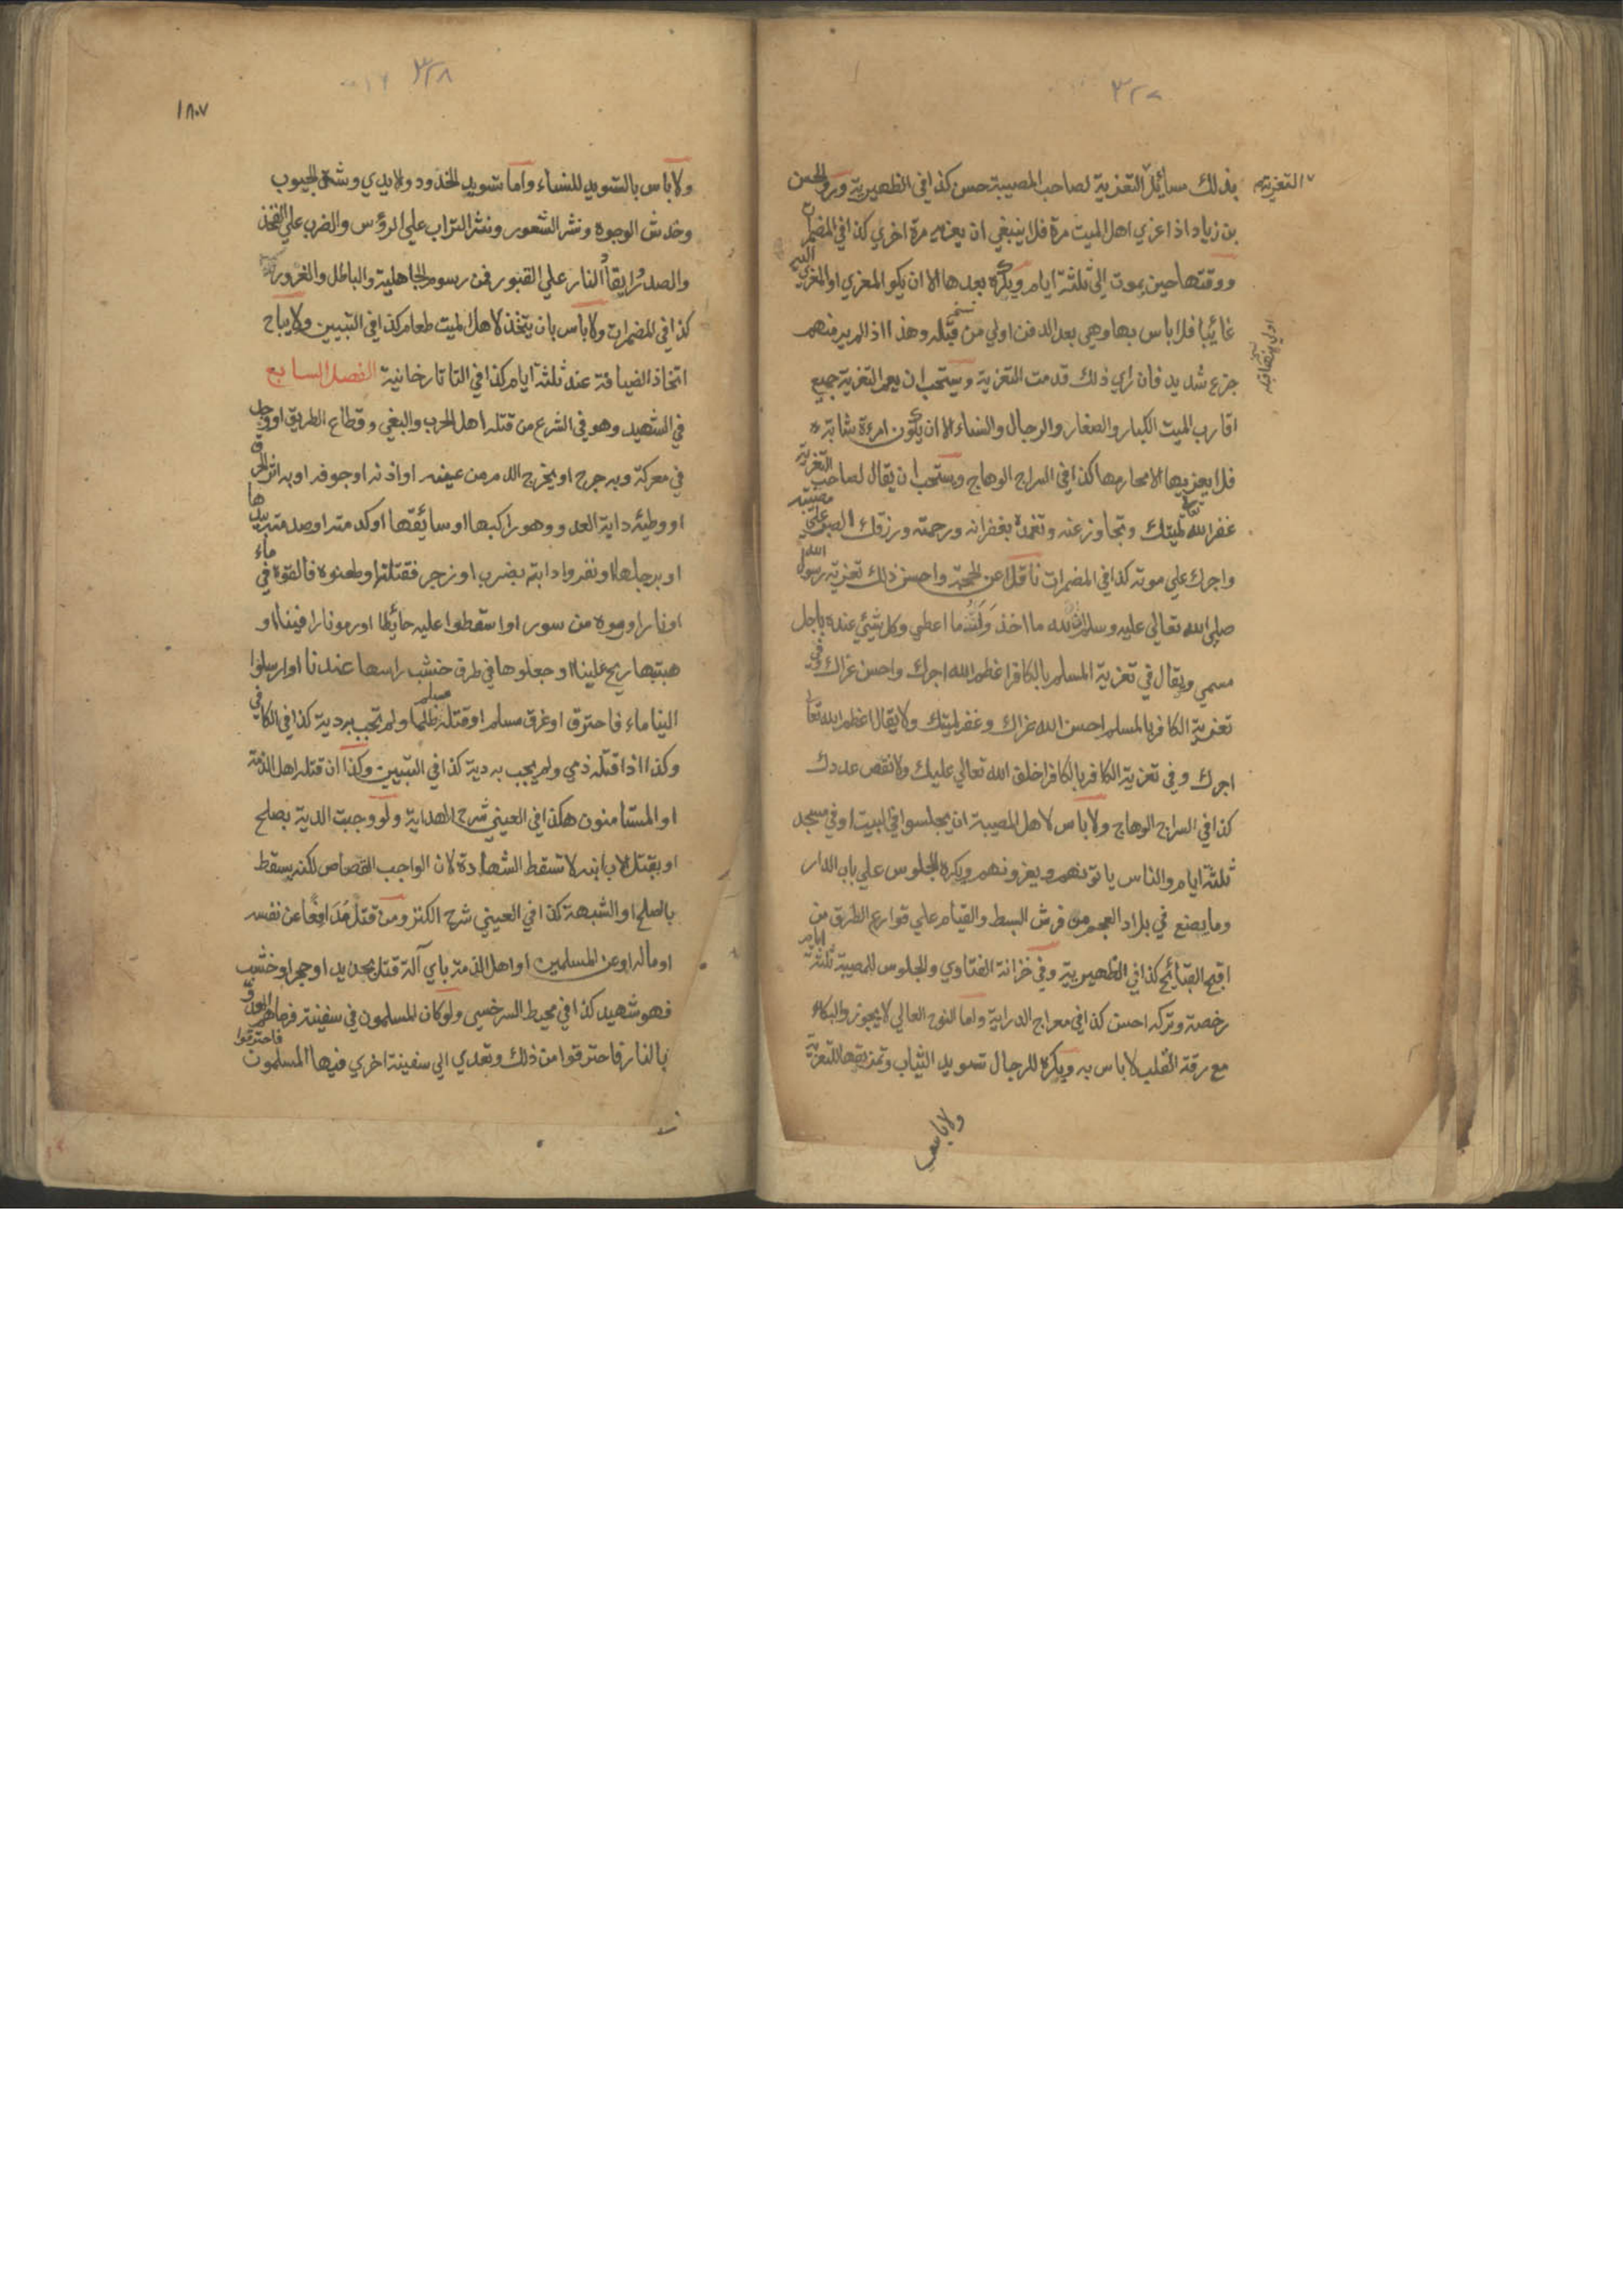 ٣٢٧
التعزية
بذلك مسائل التعزية لصاحب المصيبة حسن كذا في الظهيرية وروي الحسن
بن زياد اذا عزي اهل الميت مرة فلا ينبغي ان يعزيه مرة اخري كذا في المضمرات
ووقتها حين يموت الي ثلثة ايام ويكره بعدها الا ان يكون المعزي او المعزي اليه
غائبا فلا باس بها وهي بعد الدفن اولي من قبله وهذا اذا لم ير منهم
جزع شديد فان راي ذلك قدمت التعزية ويستحب ان يعم التعزية جميع
اقارب الميت الكبار والصغار والرجال والنساء الا ان يكون امرءة شابة
فلا يعزيها الا محارمها كذا في السراج الوهاج ويستحب ان يقال لصاحب التعزية
غفر الله تعالي لميتك وتجاوز عنه وتغمده بغفرانه ورحمته ورزقك الصبر علي مصيبته
واجرك علي موته كذا في المضمرات ناقلا عن الحجة واحسن ذلك تعزية رسول الله
صلي الله تعالي عليه وسلم ان لله ما اخذ وله ما اعطي وكل شيئ عنده باجل
مسمي ويقال في تعزية المسلم بالكافر اعظم الله اجرك واحسن عزاك وفي
تعزية الكافر بالمسلم احسن الله عزاك وغفر لميتك ولا يقال اعظم الله تعالي
اجرك وفي تعزية الكافر بالكافر اخلف الله تعالي عليك ولا نقص عددك
كذا في السراج الوهاج ولا باس لاهل المصيبة ان يجلسوا في البيت او في مسجد
ثلثة ايام والناس ياتونهم ويعزونهم ويكره الجلوس علي باب الدار
وما يصنع في بلاد العجم من فرش البسط والقيام علي قوارع الطرق من
اقبح القبائح كذا في الظهيرية وفي خزانة الفتاوي والجلوس للمصيبة ثلثة ايام
رخصة وتركه احسن كذا في معراج الدراية واما النوح العالي لا يجوز والبكاء
مع رقة القلب لا باس به ويكره للرجال تسويد الثياب وتمزيقها للتعزية
ولا باس
٣٢٨
١٨٠٧
ولا باس بالتسويد للنساء واما تسويد الخدود والايدي وشق الجيوب
وخدش الوجوه ونشر الشعور ونثر التراب علي الرؤس والضرب علي الفخذ
والصدر وايقاد النار علي القبور فمن رسوم الجاهلية والباطل والغرور
كذا في المضمرات ولا باس بان يتخذ لاهل الميت طعام كذا في التبيين ولا يباح
اتخاذ الضيافة عند ثلثة ايام كذا في التاتارخانية الفصل السابع
في الشهيد وهو في الشرع من قتله اهل الحرب والبغي وقطاع الطريق او وجد
في معركة وبه جرح او يخرج الدم من عينه او اذنه او جوفه او به اثر الحرق
او وطئه دابة العدو وهو راكبها او سائقها او كدمته او صدمته بيدها
او برجلها او نفروا دابته بضرب او زجر فقتلته او طعنوه فالقوه في ماء
او نار او رموه من سور او اسقطوا عليه حائطا او رموا نارا فينا او
هبت بها ريح علينا او جعلوها في طرف خشب راسها عندنا او ارسلوا
الينا ماء فاحترق او غرق مسلم او قتله مسلم ظلما ولم تجب به دية كذا في الكافي
وكذا اذا قتله ذمي ولم يجب به دية كذا في التبيين وكذا ان قتله اهل الذمة
او المستامنون هكذا في العيني شرح الهداية ولو وجبت الدية بصلح
او بقتل الاب ابنه لا تسقط الشهادة لان الواجب القصاص لكنه يسقط
بالصلح او الشبهة كذا في العيني شرح الكنز ومن قتل مدافعا عن نفسه
او ماله او عن المسلمين او اهل الذمة باي آلة قتل بحديد او حجر او خشب
فهو شهيد كذا في محيط السرخسي ولو كان المسلمون في سفينة فرماهم العدو
بالنار فاحترقوا من ذلك وتعدي الي سفينة اخري فيها المسلمون فاحترقوا